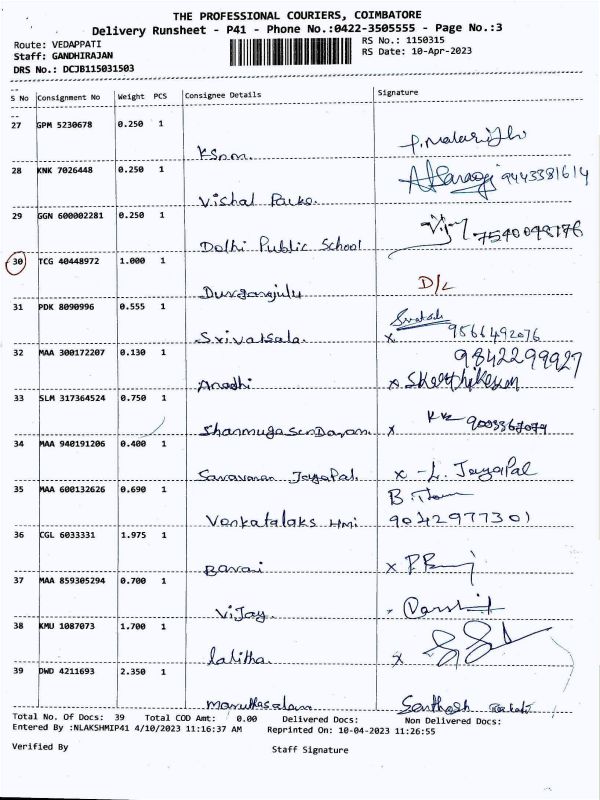 THE PROFESSIONAL COURIERS, COIMBATORE
Delivery Runsheet - P41 - Phone No.:0422-3505555 - Page No.:3
Route: VEDAPPATI
RS No.: 1150315
Staff: GANDHIRAJAN
RS Date: 10-Apr-2023
DRS No.: DCJB115031503
S No Consignment No Weight PCS Consignee Details Signature
27 GPM 5230678 0.250 1
28 KNK 7026448 0.250 1
9443381614
Vishal
29 GGN 600002281 0.250 1
Delhi Public School
30 TCG 40448972 1.000 1
D/L
31 PDK 8090996 0.555 1
Srivatsala. x 9566492076
32 MAA 300172207 0.130 1
9842299927
33 SLM 317364524 0.750 1
x
34 MAA 940191206 0.400 1
Saravanan JayaPal. x -L. JayaPal
35 MAA 600132626 0.690 1
Venkatalaks Hmi 9042977301
36 CGL 6033331 1.975 1
x
37 MAA 859305294 0.700 1
ViJay.
38 KMU 1087073 1.700 1
lalitha. x
39 DWD 4211693 2.350 1
Santhosh
Total No. Of Docs: 39 Total COD Amt: 0.00 Delivered Docs: Non Delivered Docs:
Entered By :NLAKSHMIP41 4/10/2023 11:16:37 AM Reprinted On: 10-04-2023 11:26:55
Verified By Staff Signature